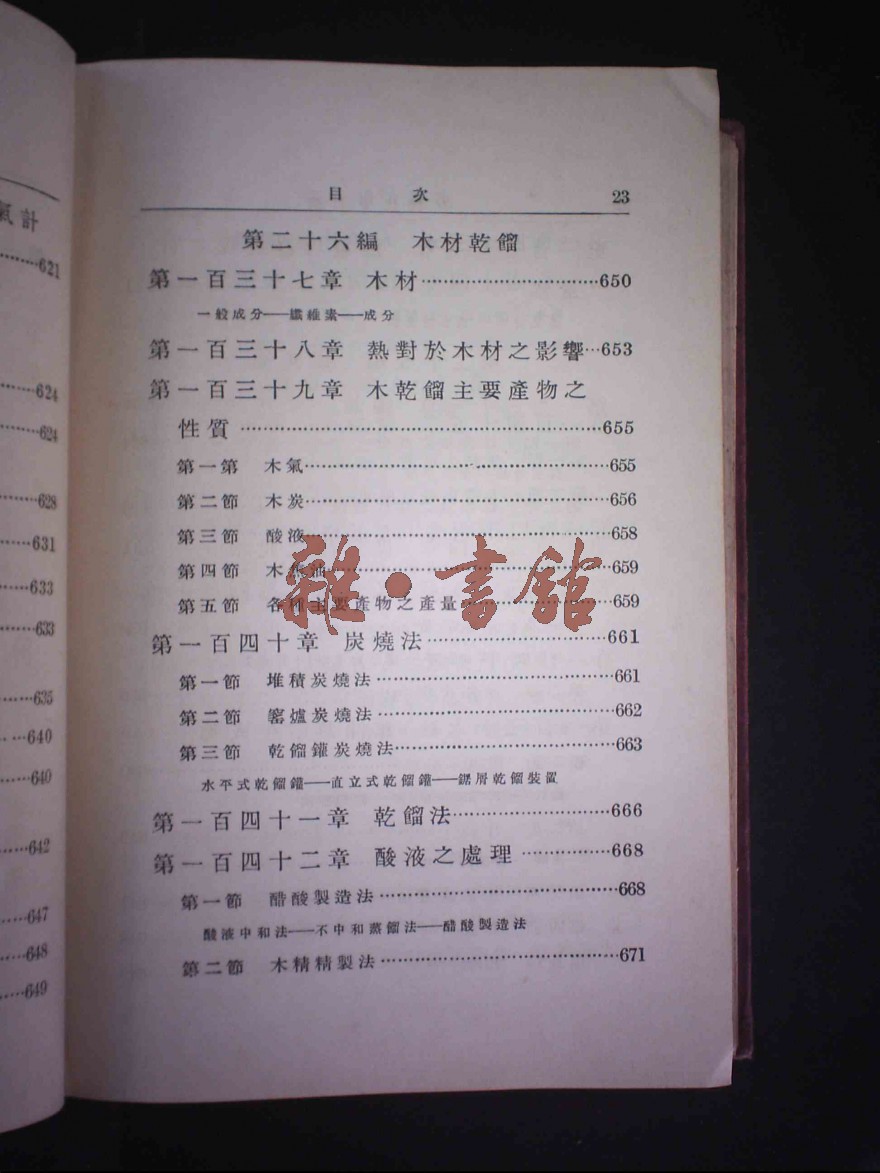 氣計
621
624
624
628
631
633
633
635
640
640
642
647
648
649
目 次 23
第二十六編 木材乾餾
第一百三十七章 木材……650
一般成分——纖維素——成分
第一百三十八章 熱對於木材之影響…653
第一百三十九章 木乾餾主要產物之
性質……655
第一第 木氣……655
第二節 木炭……656
第三節 酸液……658
第四節 木焦油……659
第五節 各種主要產物之產量……659
雅·書館
第一百四十章 炭燒法……661
第一節 堆積炭燒法……661
第二節 窰爐炭燒法……662
第三節 乾餾鑵炭燒法……663
水平式乾餾鑵——直立式乾餾鑵——鋸屑乾餾裝置
第一百四十一章 乾餾法……666
第一百四十二章 酸液之處理……668
第一節 醋酸製造法……668
酸液中和法——不中和蒸餾法——醋酸製造法
第二節 木精精製法……671